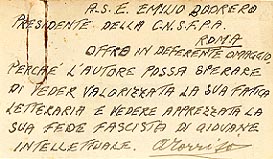 A.S.E. EMILIO BODRERO
PRESIDENTE DELLA C.N.S.F.P.A.
ROMA
OFFRO IN DEFERENTE OMAGGIO
PERCHÈ L'AUTORE POSSA SPERARE
DI VEDER VALORIZZATA LA SUA FATICA
LETTERARIA E VEDERE APPREZZATA LA
SUA FEDE FASCISTA DI GIOVANE
INTELLETTUALE.